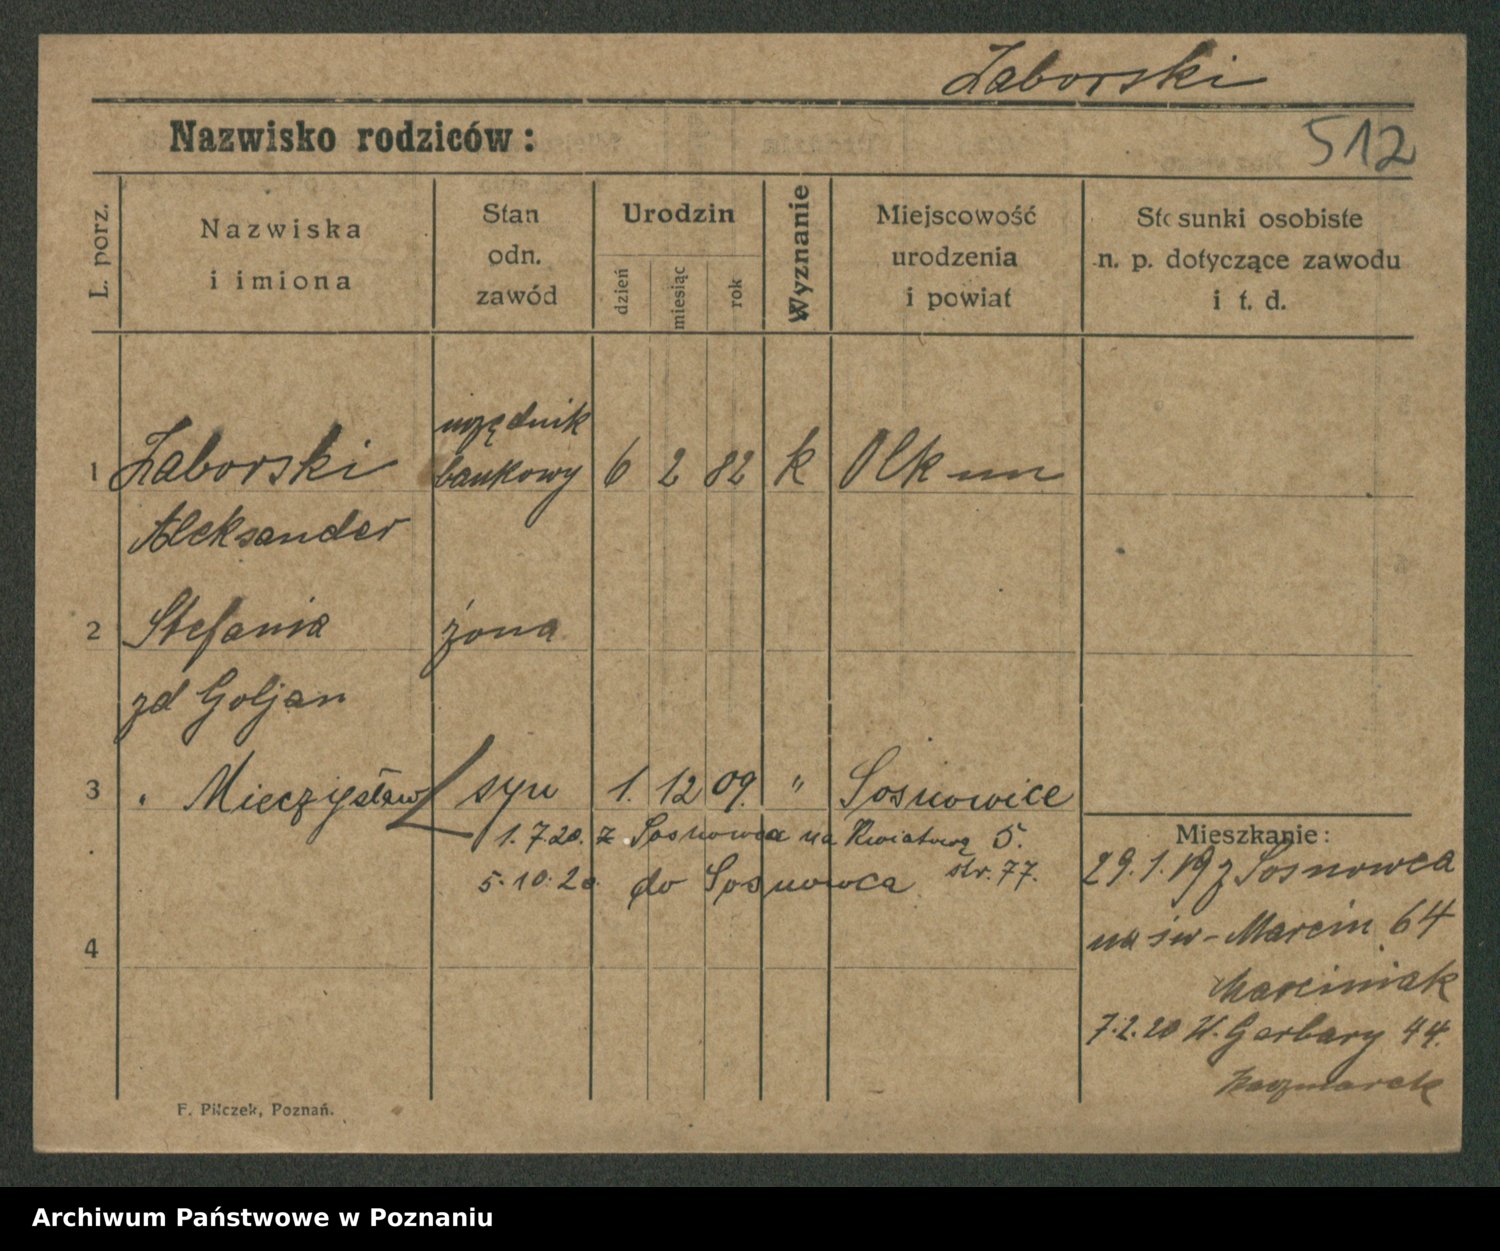 Zaborski
Nazwisko rodziców:
512
L. porz.
Nazwiska
i imiona
Stan
odn.
zawód
Urodzin
dzień
miesiąc
rok
Wyznanie
Miejscowość
urodzenia
i powiat
Stosunki osobiste
n. p. dotyczące zawodu
i t. d.
urzędnik
1 Zaborski bankowy 6 2 82 k Olkun
Aleksander
2 Stefania żona
zd Goljan
3 " Mieczysław syn 1. 12 09. " Sosnowice
1.7.20. z Sosnowca na Kwiatową 5.
5.10.20. do Sosnowca str. 77.
4
Mieszkanie:
29.1.19 z Sosnowca
na św-Marcin 64
Marciniak
7.2.20 W. Garbary 44.
Kaczmarek
F. Pilczek, Poznań.
Archiwum Państwowe w Poznaniu